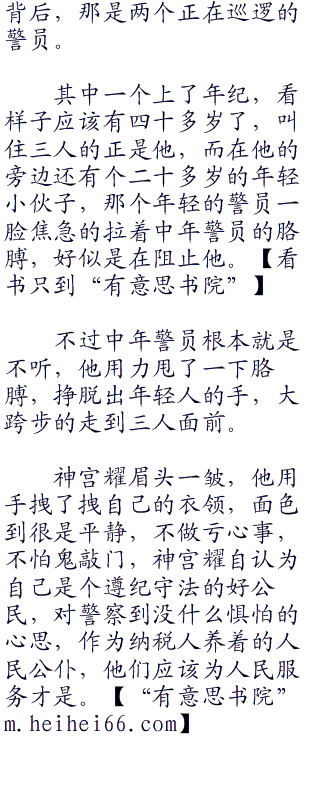 背后，那是两个正在巡逻的
警员。
其中一个上了年纪，看
样子应该有四十多岁了，叫
住三人的正是他，而在他的
旁边还有个二十多岁的年轻
小伙子，那个年轻的警员一
脸焦急的拉着中年警员的胳
膊，好似是在阻止他。【看
书只到“有意思书院”】
不过中年警员根本就是
不听，他用力甩了一下胳
膊，挣脱出年轻人的手，大
跨步的走到三人面前。
神宫耀眉头一皱，他用
手拽了拽自己的衣领，面色
到很是平静，不做亏心事，
不怕鬼敲门，神宫耀自认为
自己是个遵纪守法的好公
民，对警察到没什么惧怕的
心思，作为纳税人养着的人
民公仆，他们应该为人民服
务才是。【“有意思书院”
m.heihei66.com】